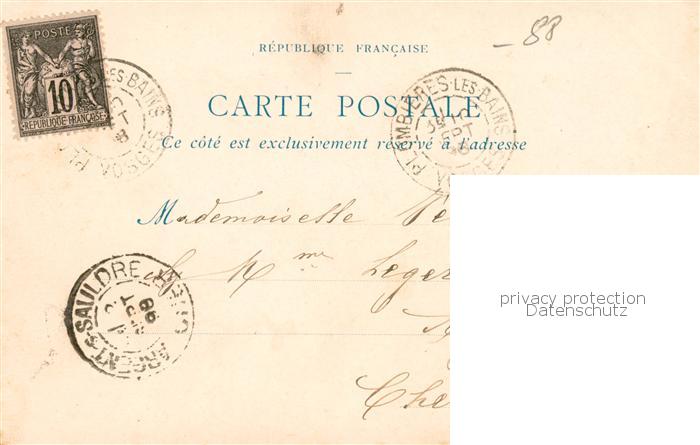 88
POSTE
10
REPUBLIQUE FRANÇAISE
RÉPUBLIQUE FRANÇAISE
CARTE POSTALE
Ce côté est exclusivement réservé à l'adresse
PLOMBIÈRES-LES-BAINS
LES-BAINS
VOSGES
Mademoiselle
Mme Leger
ARGENT-S-SAULDRE
CHER
98
privacy protection
Datenschutz